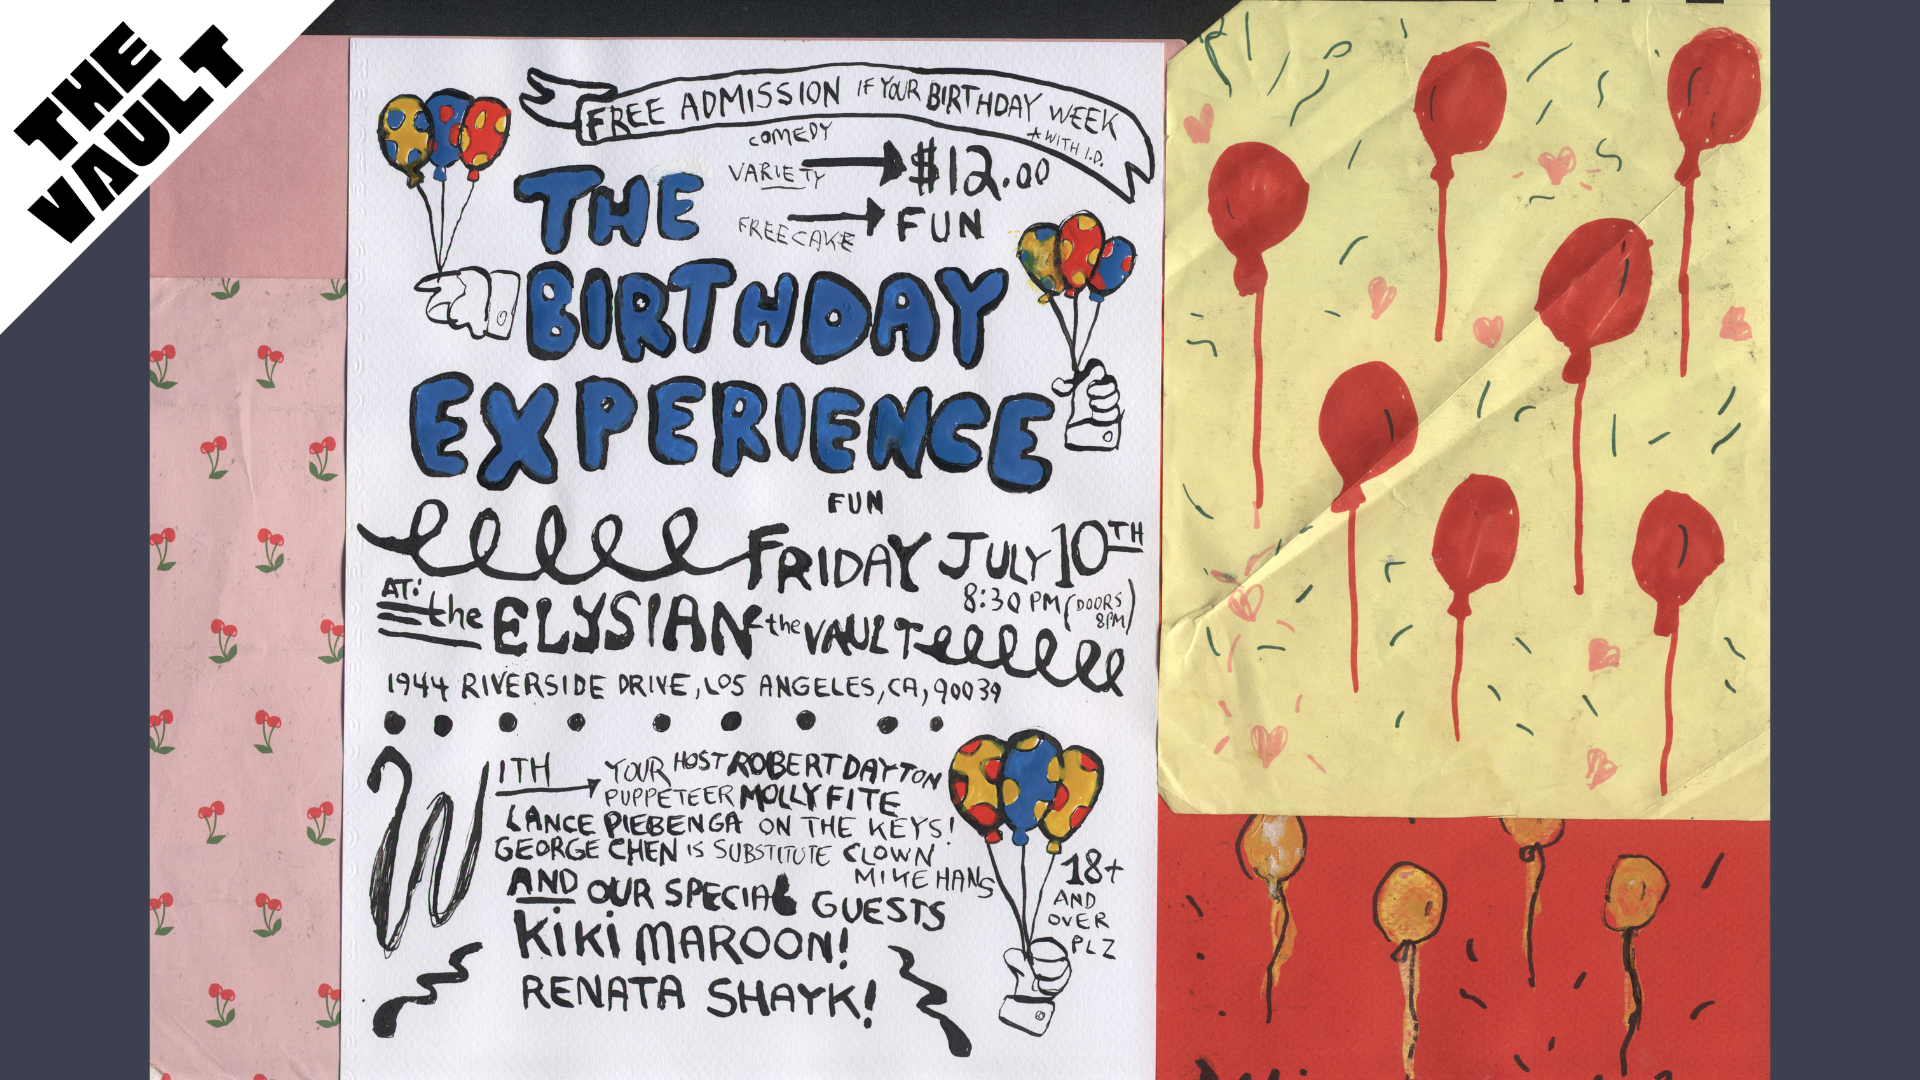 THE
VAULT
FREE ADMISSION IF YOUR BIRTHDAY WEEK
* WITH I.D.
COMEDY
VARIETY
$12.00
FREE CAKE
FUN
THE
BIRTHDAY
EXPERIENCE
FUN
FRIDAY JULY 10TH
8:30 PM (DOORS 8PM)
AT: the ELYSIAN the VAULT
1944 RIVERSIDE DRIVE, LOS ANGELES, CA, 90039
WITH YOUR HOST ROBERT DAYTON
PUPPETEER MOLLY FITE
LANCE PIEBENGA ON THE KEYS!
GEORGE CHEN IS SUBSTITUTE CLOWN
MIKE HANS
AND OUR SPECIAL GUESTS
KIKI MAROON!
RENATA SHAYK!
18+
AND
OVER
PLZ